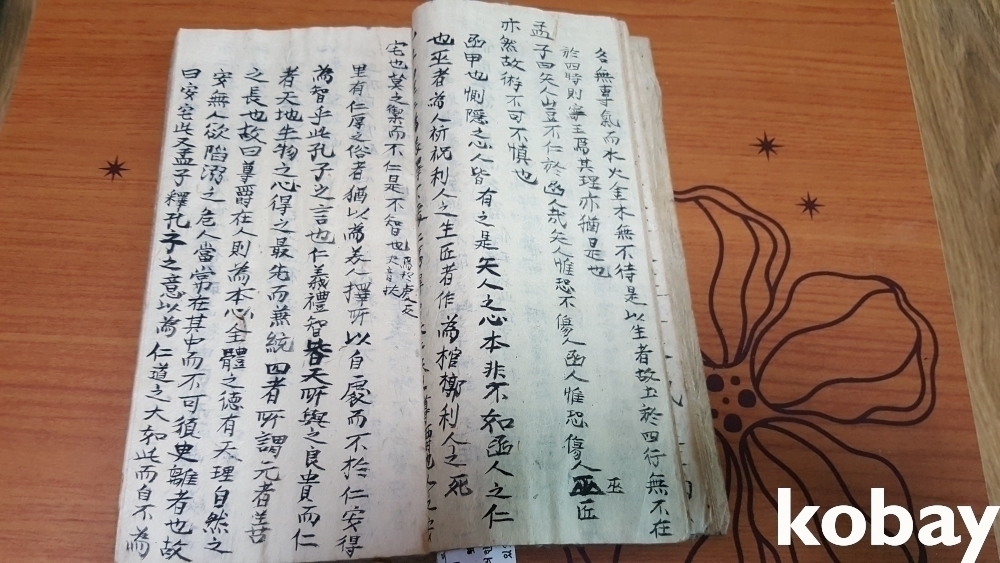 名無專氣而水火金木無不待是以生者故土於四行無不在
於四時則寄王焉其理亦猶是也
孟子曰矢人豈不仁於函人哉矢人惟恐不傷人函人惟恐傷人巫匠
巫
亦然故術不可不慎也
函甲也惻隱之心人皆有之是矢人之心本非不如函人之仁
也巫者為人祈祝利人之生匠者作為棺槨利人之死
宅也莫之禦而不仁是不智也 焉於虔反夫音扶
里有仁厚之俗者猶以為美人擇所以自處而不於仁安得
為智乎此孔子之言也仁義禮智皆天所與之良貴而仁
者天地生物之心得之最先而兼統四者所謂元者善
之長也故曰尊爵在人則為本心全體之德有天理自然之
安無人欲陷溺之危人當常在其中而不可須臾離者也故
曰安宅此又孟子釋孔子之意以為仁道之大如此而自不為
kobay